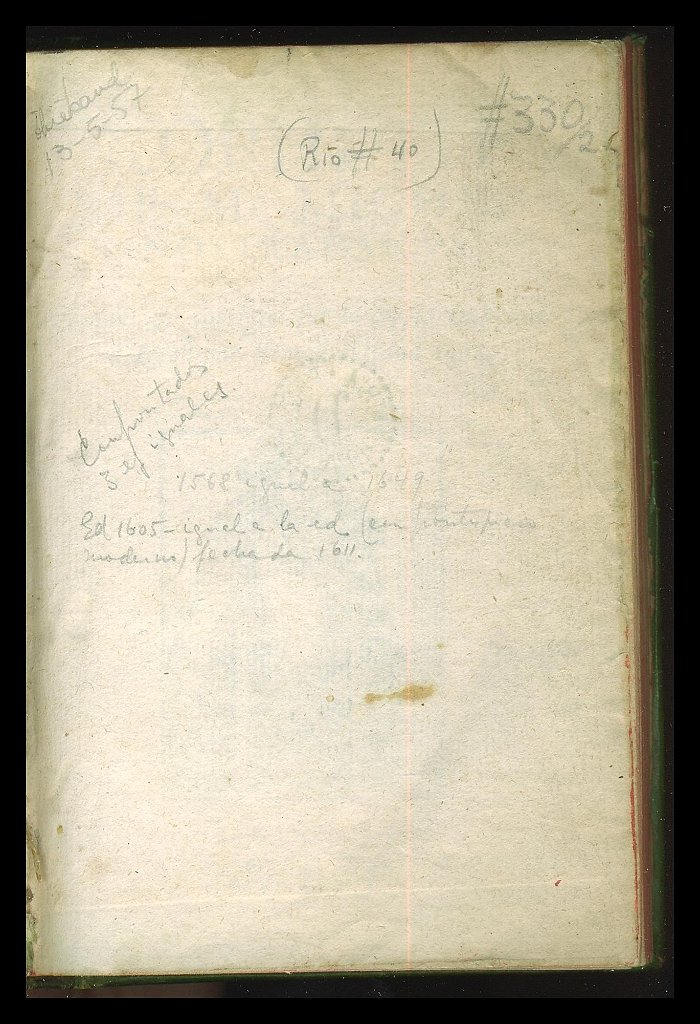 13-5-57
#330/26
(Rio # 40)
Confrontados
3 ej iguales.
1568 igual a 1649
Ed 1605 - igual a la ed. (con frontispicio
moderno) fechada 1611.